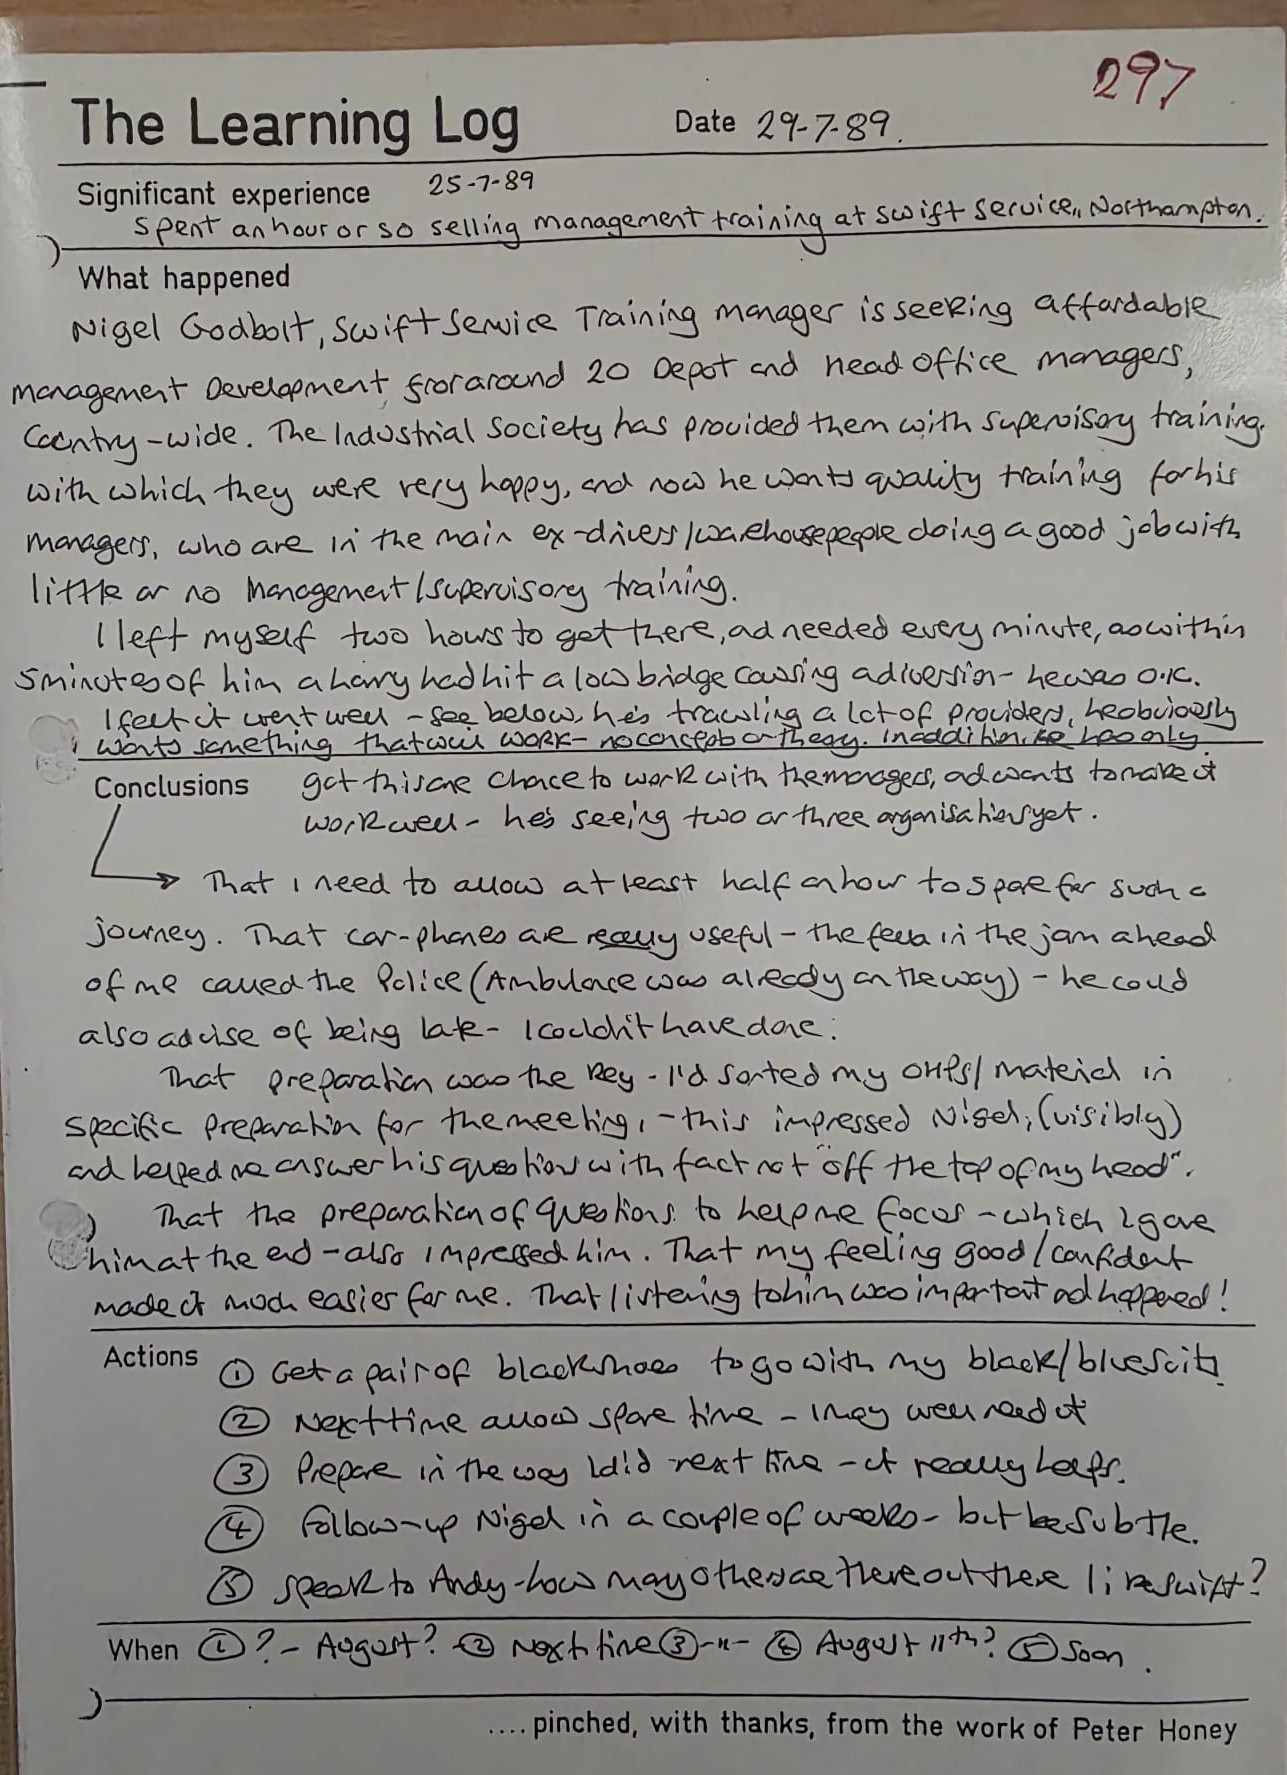 297
The Learning Log Date 29-7-89.
Significant experience 25-7-89
Spent an hour or so selling management training at Swift Service, Northampton.
What happened
Nigel Godbolt, Swift Service Training manager is seeking affordable
management Development for around 20 Depot and head office managers,
Country-wide. The Industrial Society has provided them with supervisory training,
with which they were very happy, and now he wants quality training for his
managers, who are in the main ex-drivers/warehousepeople doing a good job with
little or no management/supervisory training.
I left myself two hours to get there, ad needed every minute, as within
5 minutes of him a lorry had hit a low bridge causing a diversion - he was O.K.
I felt it went well - see below, he's trawling a lot of providers, he obviously
wants something that will work - no concept or theory. In addition, he has only
Conclusions got this one chance to work with the managers, ad wants to make it
work well - he's seeing two or three organisations yet.
That I need to allow at least half an hour to spare for such a
journey. That car-phones are really useful - the fella in the jam ahead
of me called the Police (Ambulance was already on the way) - he could
also advise of being late - I couldn't have done.
That preparation was the key - I'd sorted my OHPs/material in
specific preparation for the meeting, - this impressed Nigel, (visibly)
and helped me answer his questions with fact not "off the top of my head".
That the preparation of questions to help me focus - which I gave
him at the end - also impressed him. That my feeling good/confident
made it much easier for me. That listening to him was important ad happened!
Actions ① Get a pair of black shoes to go with my black/blue suits.
② Next time allow spare time - I may well need it
③ Prepare in the way I did next time - it really helps.
④ Follow-up Nigel in a couple of weeks - but be subtle.
⑤ Speak to Andy - how many others are there out there like Swift?
When ① ? - August? ② Next time ③ -"- ④ August 11th? ⑤ Soon.
.... pinched, with thanks, from the work of Peter Honey